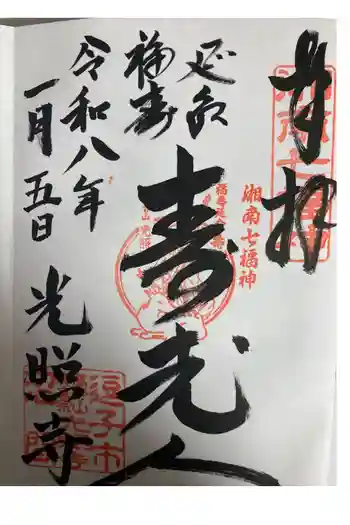 奉拝
湘南七福神
延命
福寿
寿老人
令和八年
一月五日
光照寺
逗子市